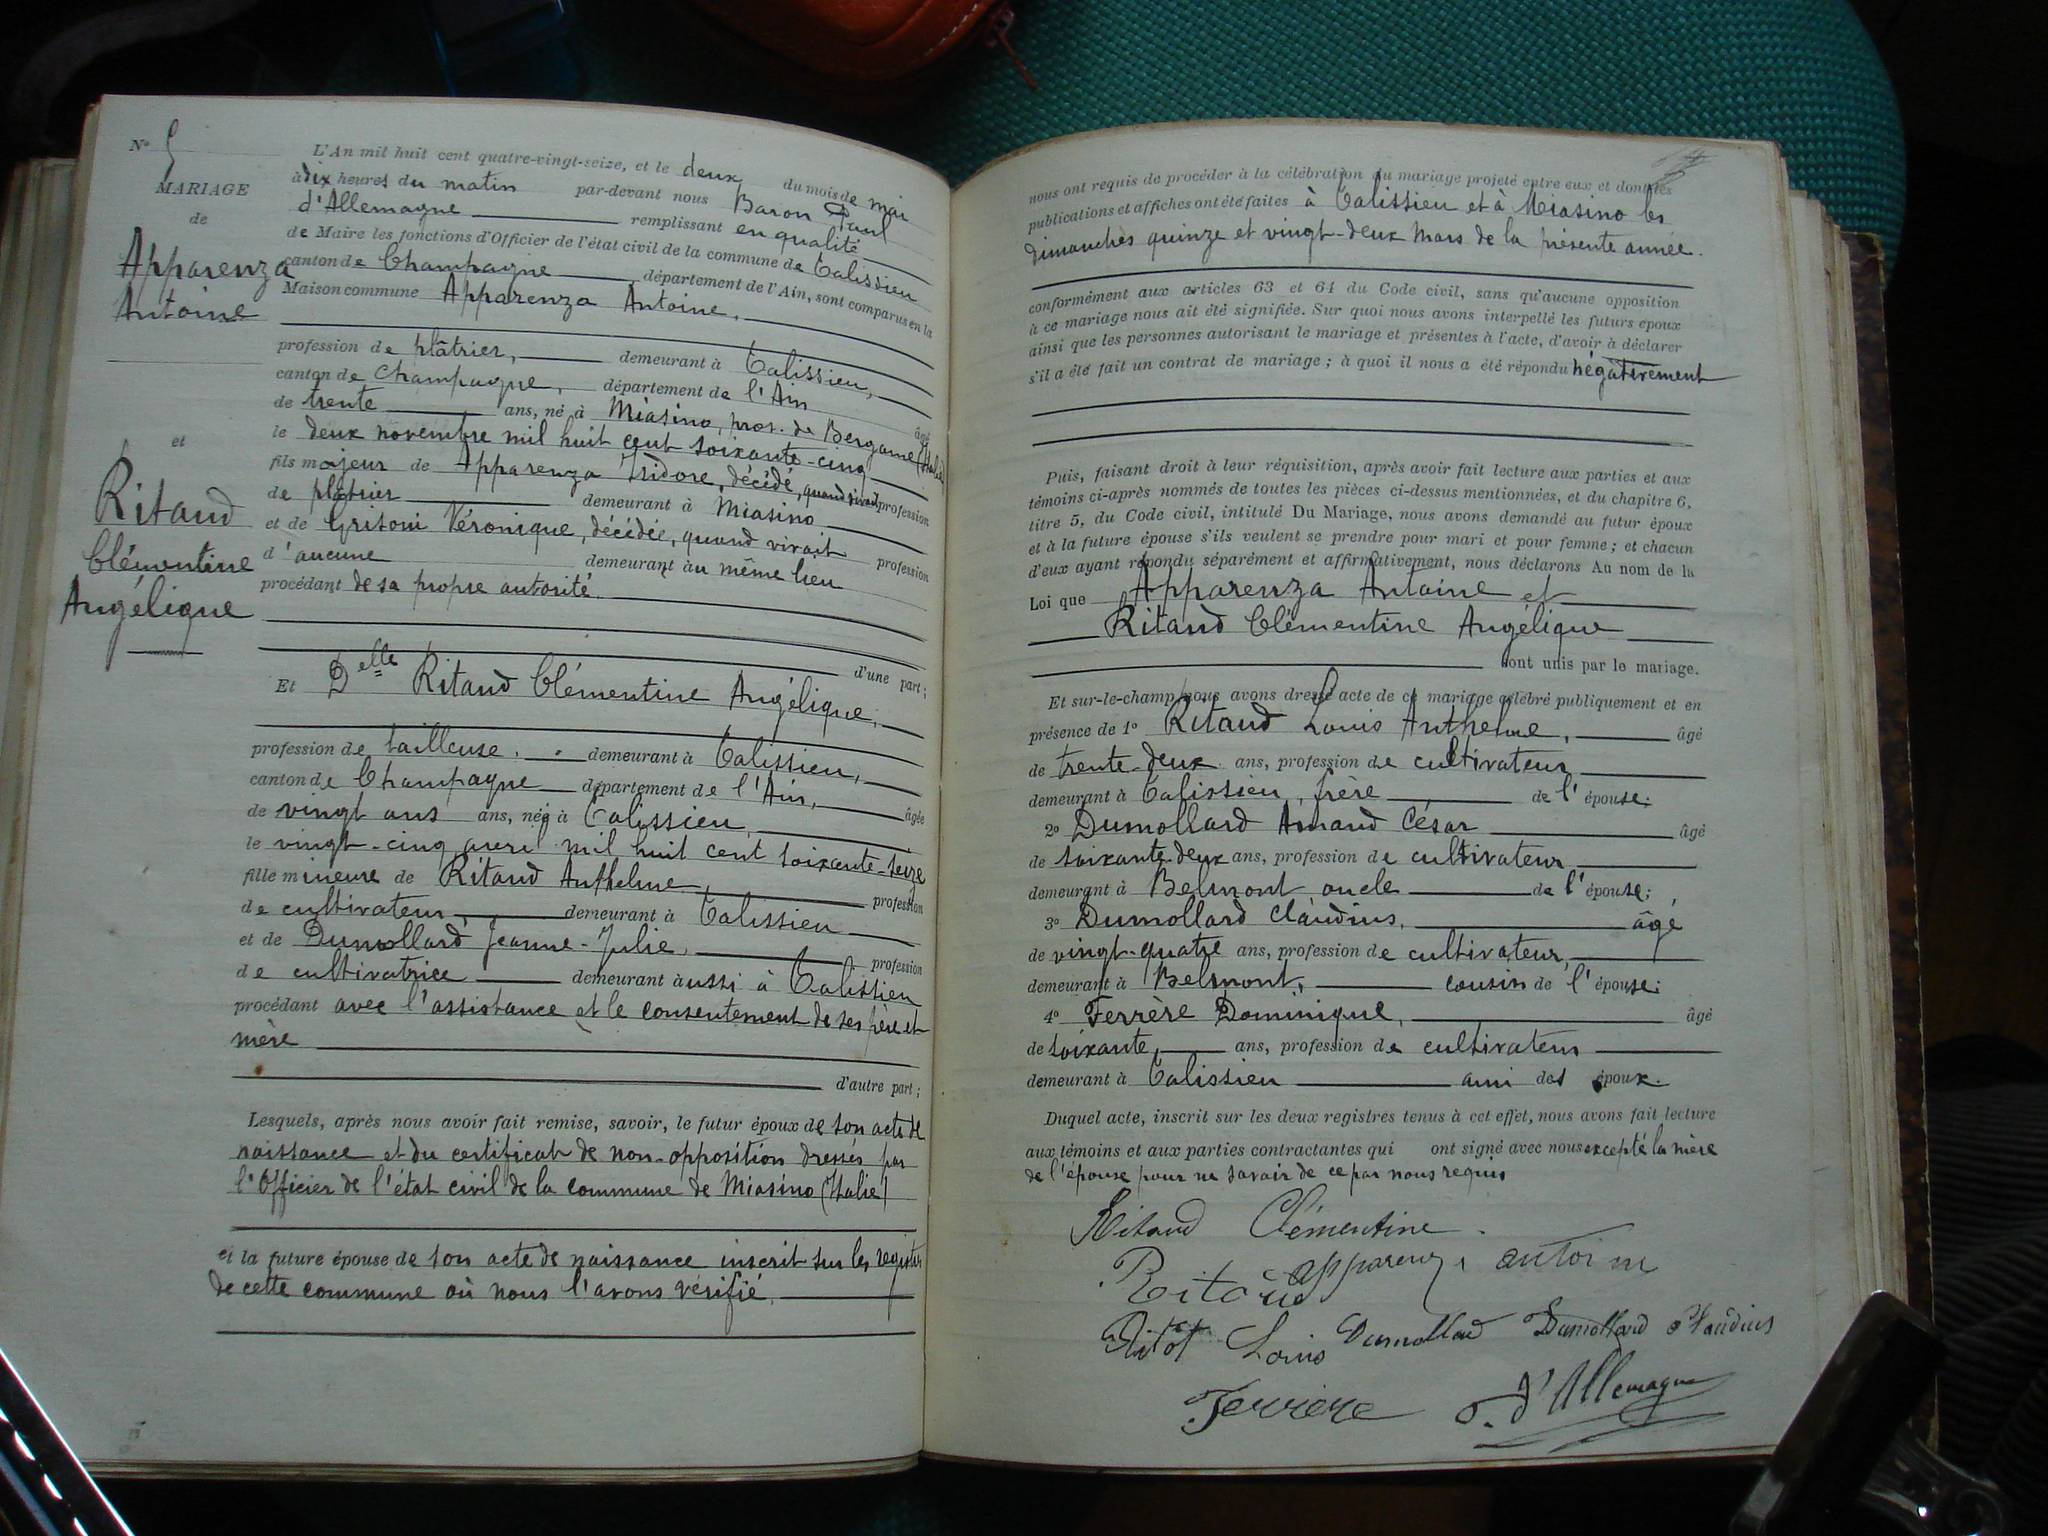 N° 5
MARIAGE
de
Apparenza
Antoine
et
Ritaud
Clémentine
Angélique
L'An mil huit cent quatre-vingt-seize, et le deux du mois de mai
à dix heures du matin par-devant nous Baron Paul
d'Allemagne remplissant en qualité
de Maire les fonctions d'Officier de l'état civil de la commune de Talissieu
canton de Champagne département de l'Ain, sont comparus en la
Maison commune Apparenza Antoine,
profession de plâtrier, demeurant à Talissieu,
canton de Champagne, département de l'Ain âgé
de trente ans, né à Miasino, prov. de Bergame (Italie)
le deux novembre mil huit cent soixante-cinq
fils majeur de Apparenza Isidore, décédé, quand vivait profession
de plâtrier demeurant à Miasino
et de Grisoni Véronique, décédée, quand vivait profession
d'aucune demeurant au même lieu
procédant de sa propre autorité.
d'une part;
Et Delle Ritaud Clémentine Angélique,
profession de tailleuse. demeurant à Talissieu,
canton de Champagne département de l'Ain, âgée
de vingt ans ans, née à Talissieu,
le vingt-cinq avril mil huit cent soixante-seize
fille mineure de Ritaud Anthelme, profession
de cultivateur, demeurant à Talissieu
et de Dumollard Jeanne-Julie, profession
de cultivatrice demeurant aussi à Talissieu
procédant avec l'assistance et le consentement de ses père et
mère
d'autre part;
Lesquels, après nous avoir fait remise, savoir, le futur époux de son acte de
naissance et du certificat de non-opposition dressés par
l'Officier de l'état civil de la commune de Miasino (Italie)
et la future épouse de son acte de naissance inscrit sur les registres
de cette commune où nous l'avons vérifié.
nous ont requis de procéder à la célébration du mariage projeté entre eux et dont les
publications et affiches ont été faites à Talissieu et à Miasino les
dimanches quinze et vingt-deux mars de la présente année.
conformément aux articles 63 et 64 du Code civil, sans qu'aucune opposition
à ce mariage nous ait été signifiée. Sur quoi nous avons interpellé les futurs époux
ainsi que les personnes autorisant le mariage et présentes à l'acte, d'avoir à déclarer
s'il a été fait un contrat de mariage; à quoi il nous a été répondu négativement
Puis, faisant droit à leur réquisition, après avoir fait lecture aux parties et aux
témoins ci-après nommés de toutes les pièces ci-dessus mentionnées, et du chapitre 6,
titre 5, du Code civil, intitulé Du Mariage, nous avons demandé au futur époux
et à la future épouse s'ils veulent se prendre pour mari et pour femme; et chacun
d'eux ayant répondu séparément et affirmativement, nous déclarons Au nom de la
Loi que Apparenza Antoine et
Ritaud Clémentine Angélique
sont unis par le mariage.
Et sur-le-champ nous avons dressé acte de ce mariage célébré publiquement et en
présence de 1° Ritaud Louis Anthelme, âgé
de trente-deux ans, profession de cultivateur
demeurant à Talissieu, frère de l'épouse;
2° Dumollard Armand César âgé
de soixante-deux ans, profession de cultivateur
demeurant à Belmont oncle de l'épouse;
3° Dumollard Claudius, âgé
de vingt-quatre ans, profession de cultivateur,
demeurant à Belmont, cousin de l'épouse;
4° Ferrère Dominique, âgé
de soixante ans, profession de cultivateur
demeurant à Talissieu ami des époux.
Duquel acte, inscrit sur les deux registres tenus à cet effet, nous avons fait lecture
aux témoins et aux parties contractantes qui ont signé avec nous excepté la mère
de l'épouse pour ne savoir de ce par nous requis
Ritaud Clémentine
apparenza antoine
Louis Dumollard Dumollard Claudius
Ferrère d'Allemagne